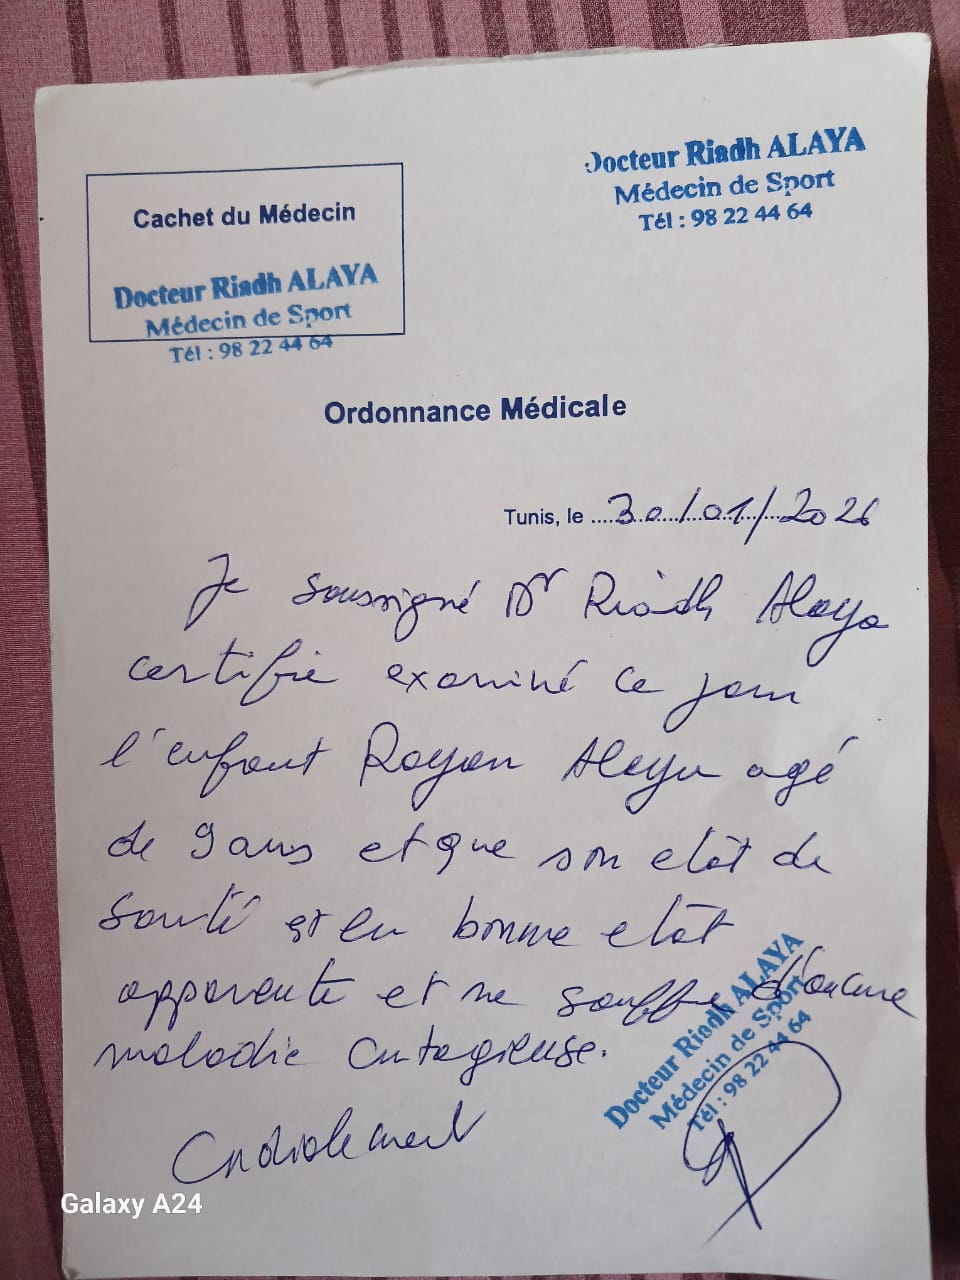 Docteur Riadh ALAYA
Médecin de Sport
Tél : 98 22 44 64
Cachet du Médecin
Docteur Riadh ALAYA
Médecin de Sport
Tél : 98 22 44 64
Ordonnance Médicale
Tunis, le 30/01/2026
Je soussigné Dr Riadh Alaya
certifie examiné ce jour
l'enfant Rayen Alaya agé
de 9 ans et que son etât de
santé est en bonne etât
apparente et ne souffre d'aucune
maladie contagieuse.
Cordialement
Docteur Riadh ALAYA
Médecin de Sport
Tél : 98 22 44 64
Galaxy A24